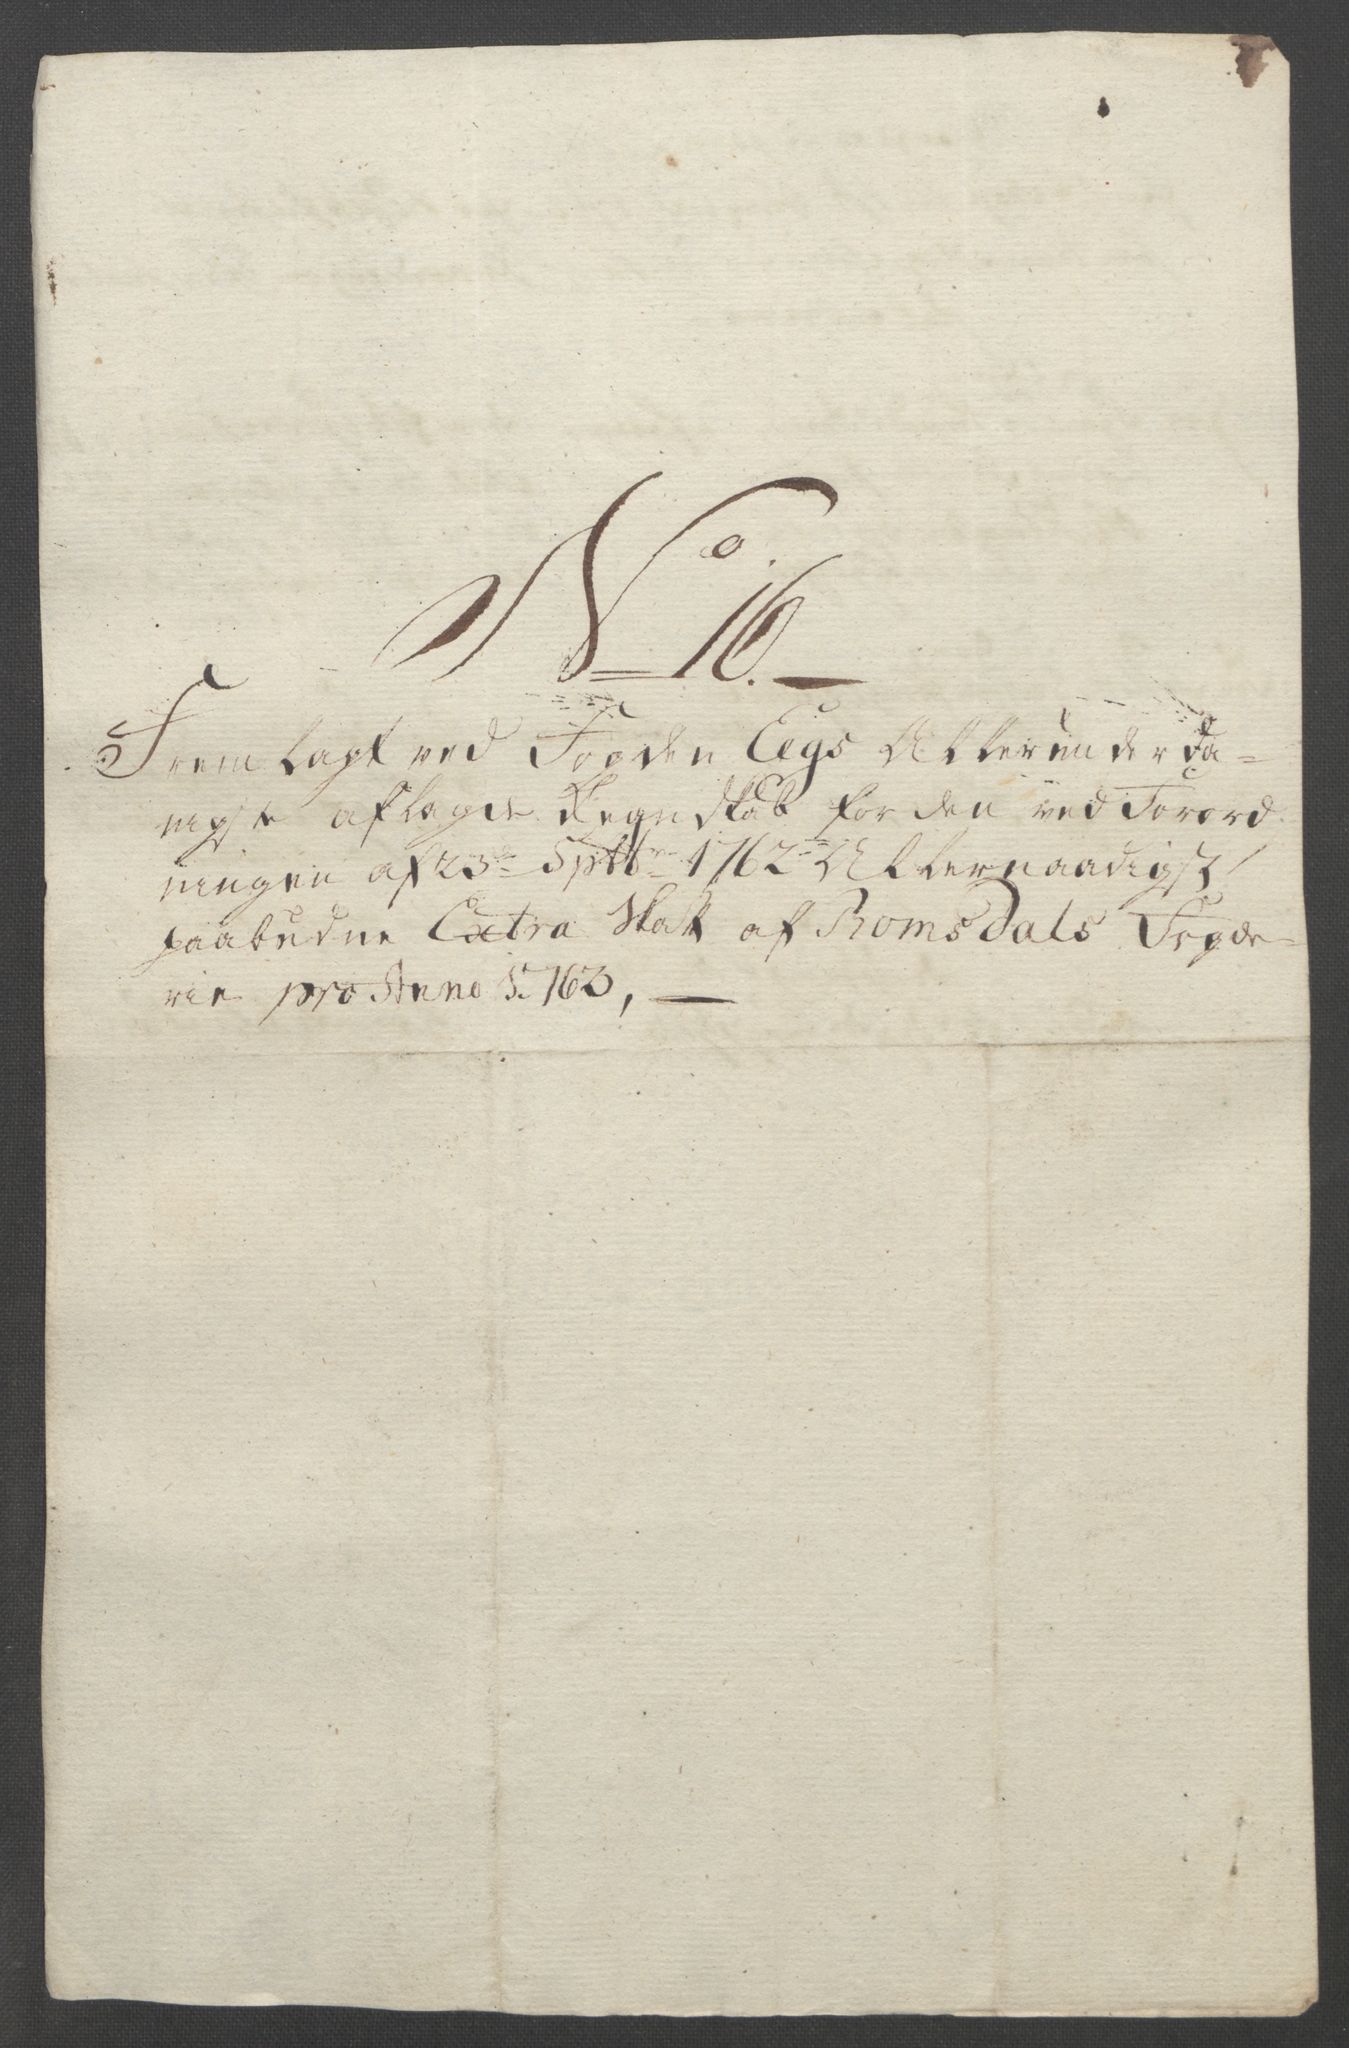 No. 16.
Fremlagt ved Fogden Eegs Allerunderda-
nigste aflagde Regnskab for den ved Forord
ningen af 23de Septbr 1762 Allernaadigst
paabudne Extra Skatt af Romsdals Fogde-
rie pro Anno 1763,